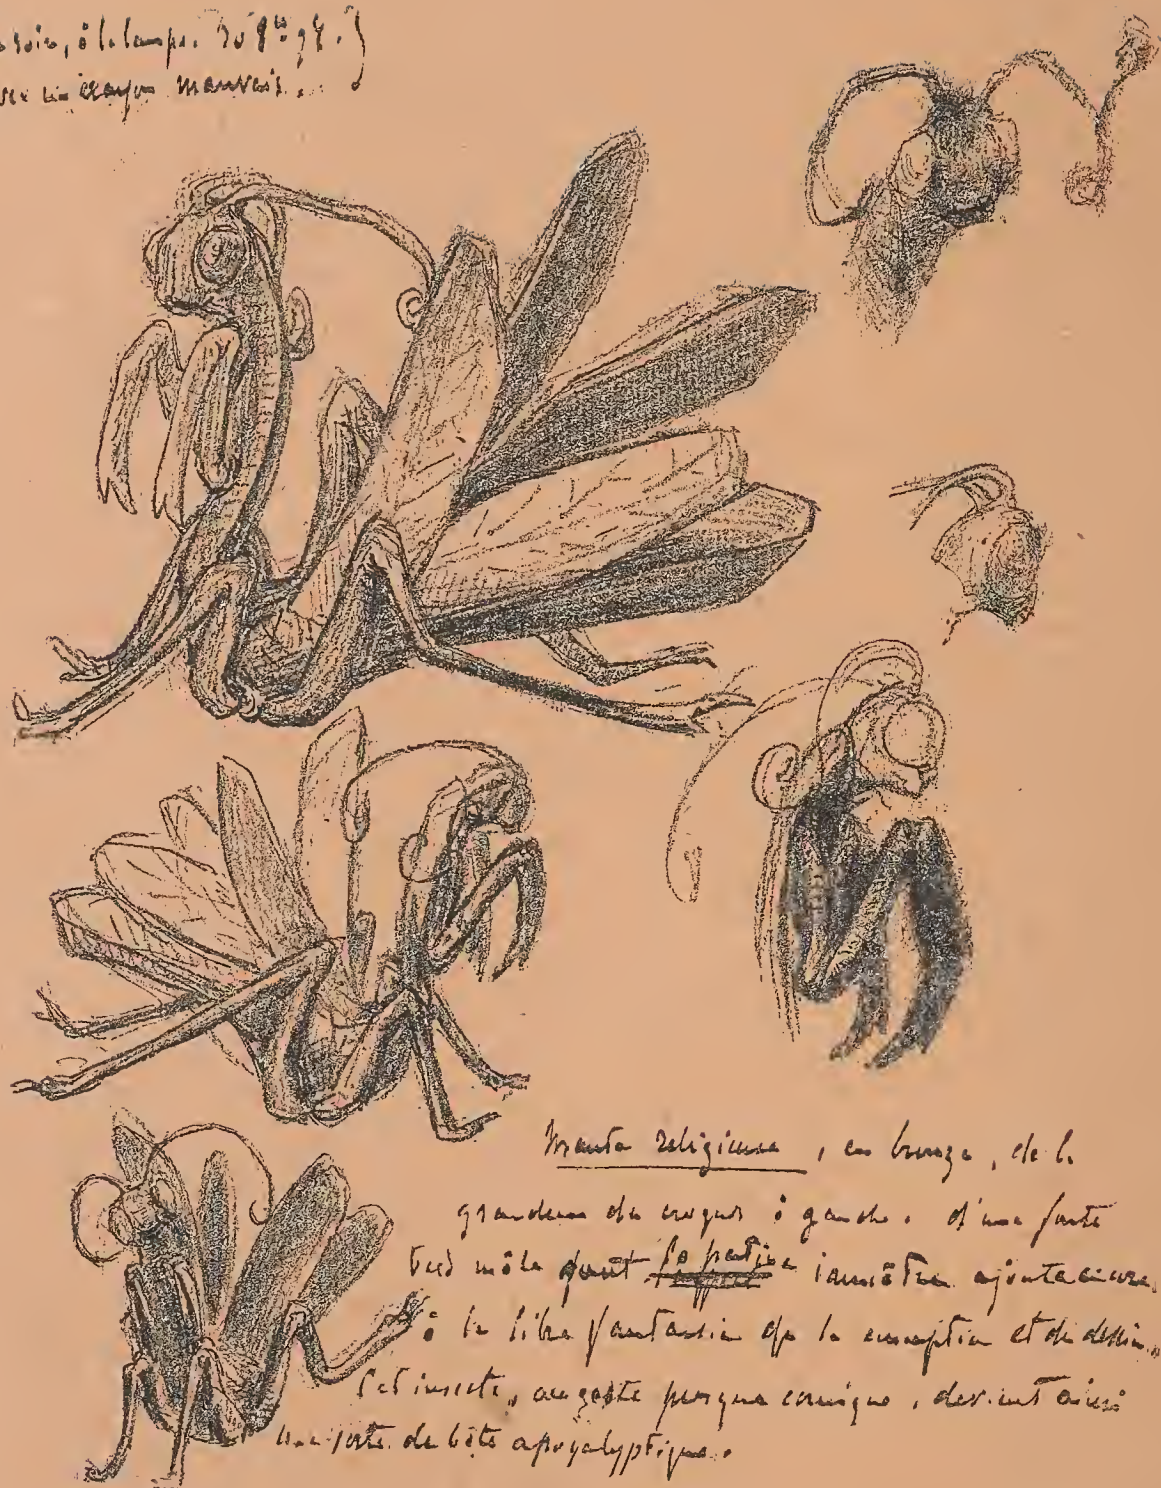 soir, à la lampe. 30
un crayon mauvais...
Mante religieuse, en bronze, de la
grandeur du croquis à gauche. d'une fonte
dont ajoute encore
à la libre fantaisie de la conception et du dessin...
Cet insecte, au geste presque comique, devient ainsi
une sorte de bête apocalyptique.